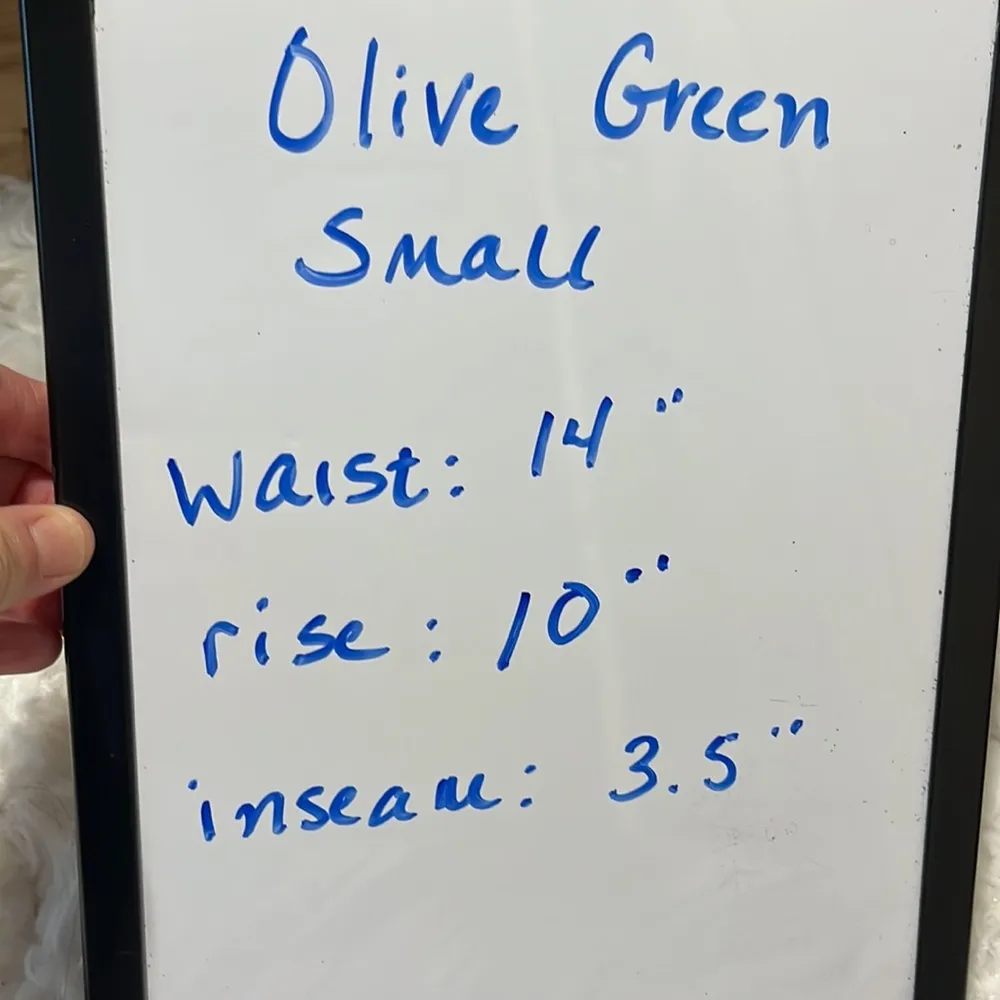 Olive Green
Small
Waist: 14"
rise: 10"
inseam: 3.5"